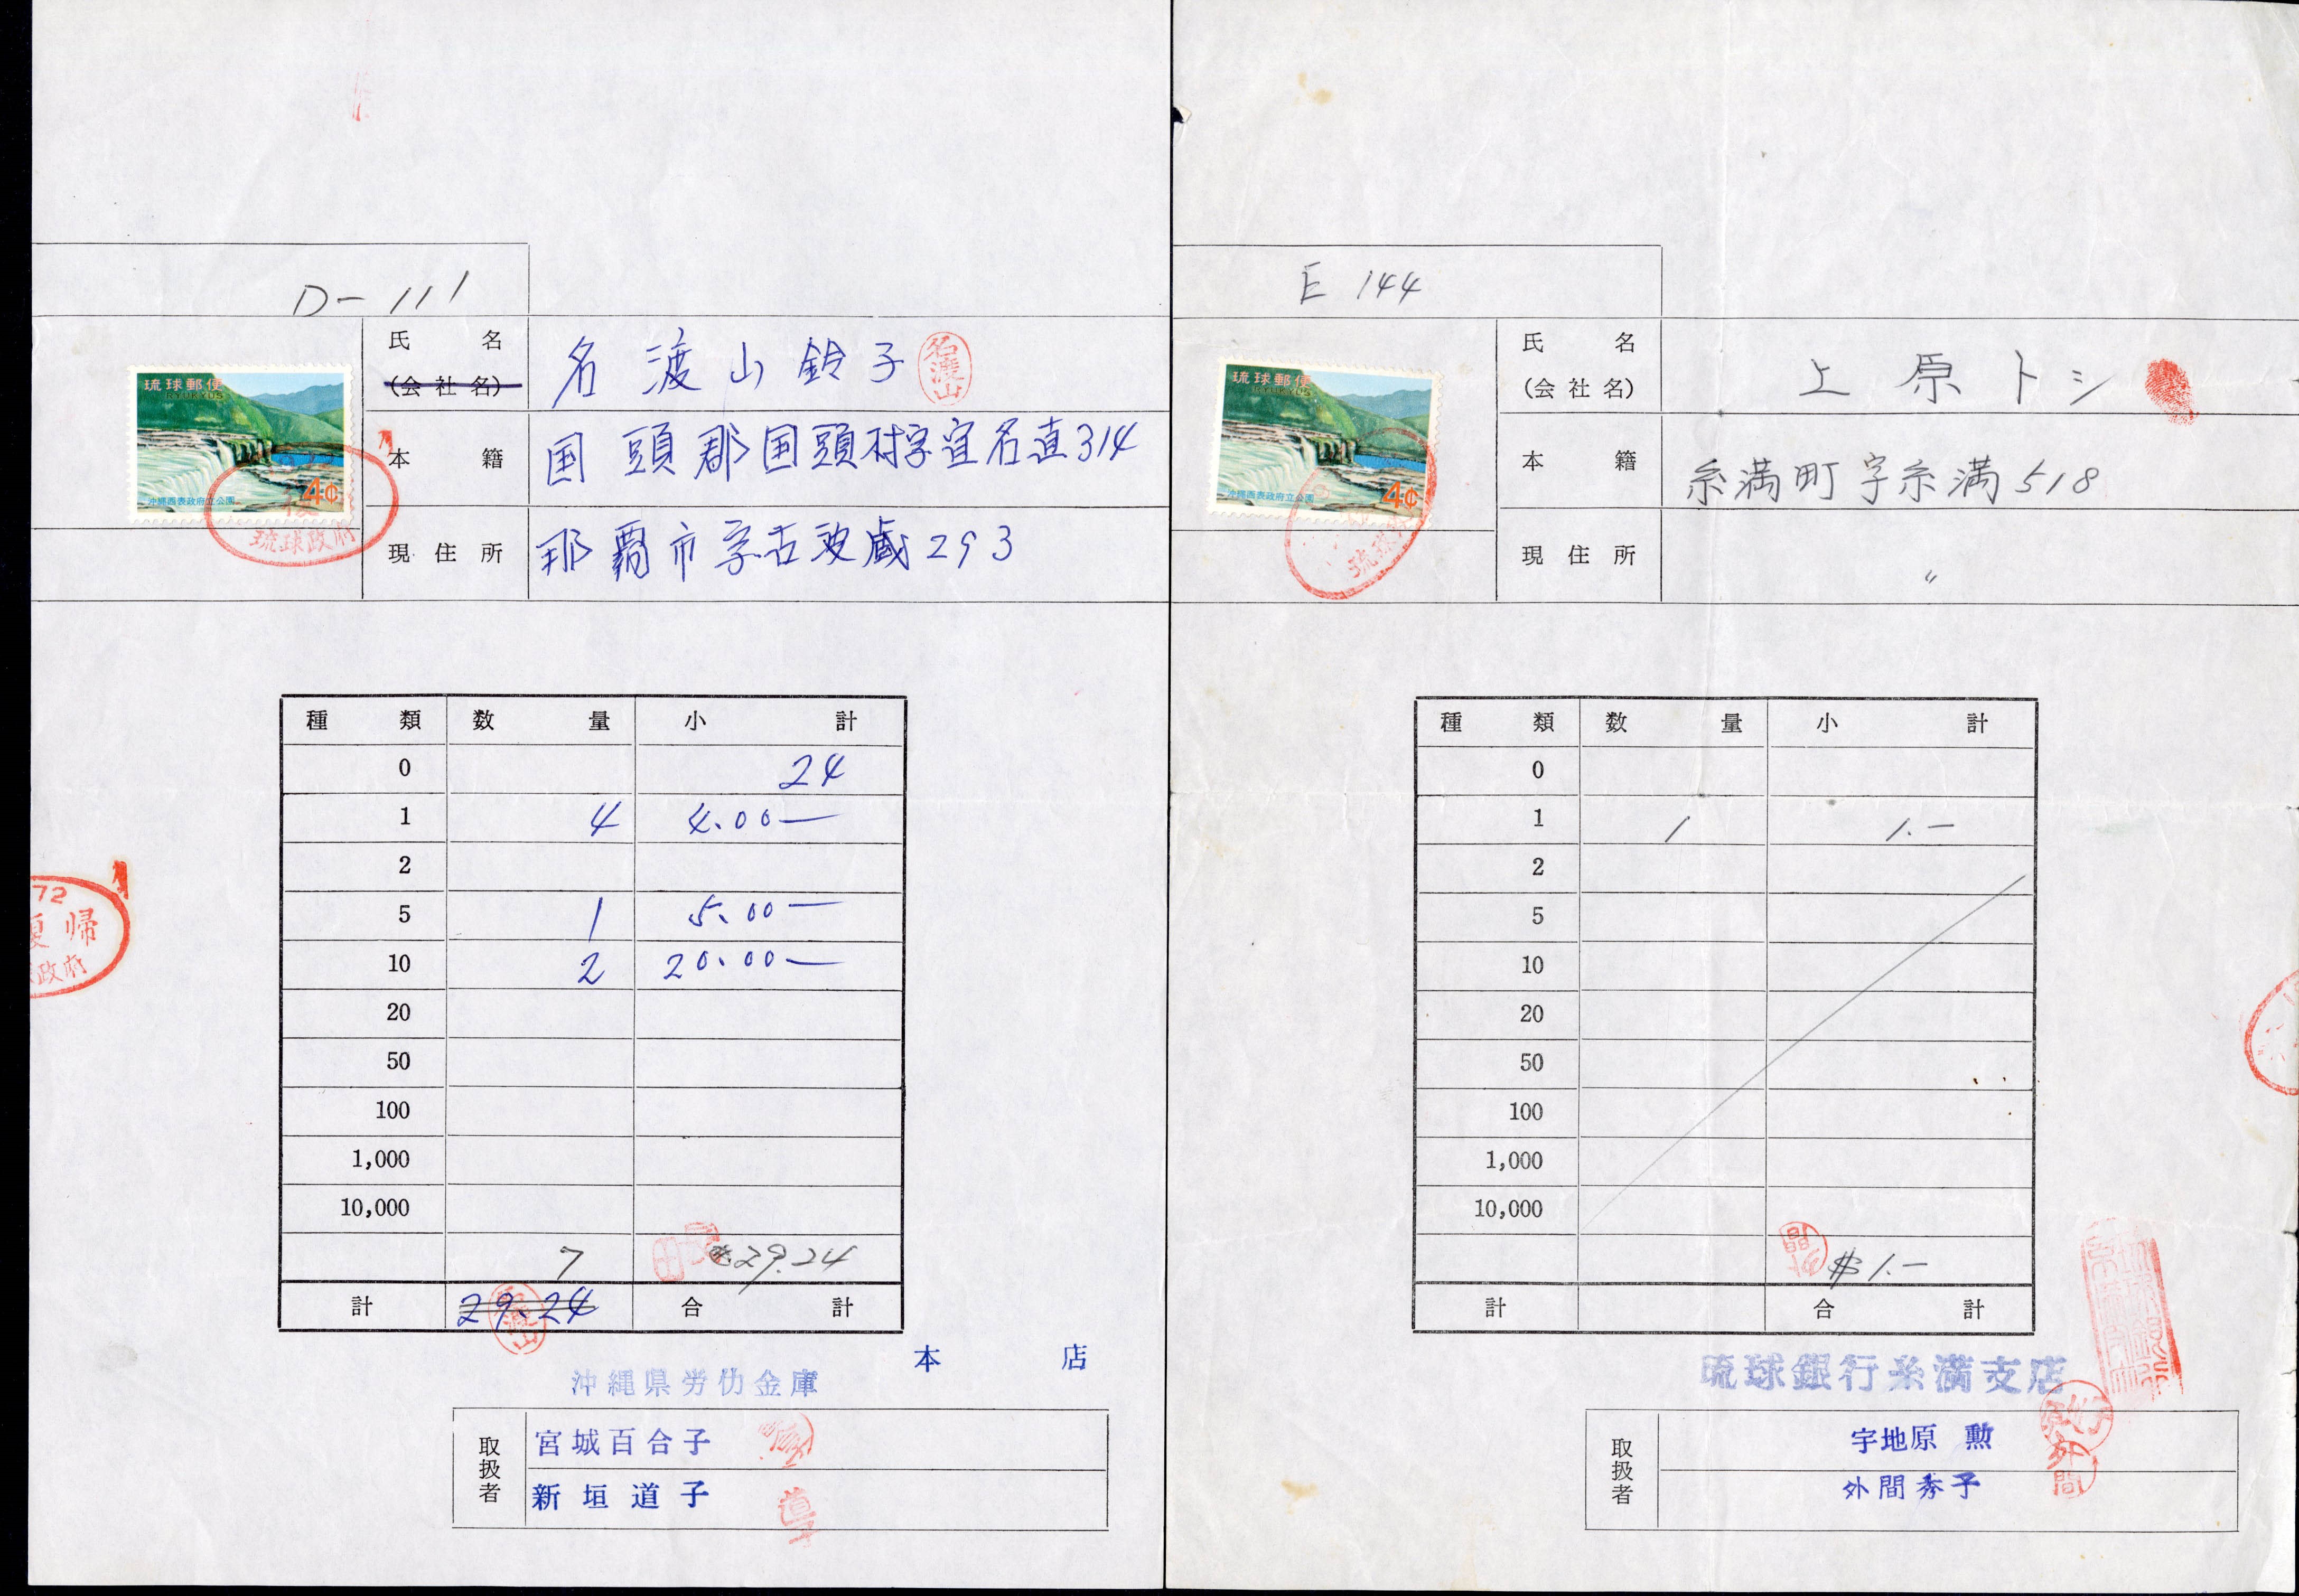 D-111
琉球郵便
RYUKYUS
沖縄西表政府立公園
4¢
琉球政府
氏名
(会社名)
名渡山鈴子
名渡山
本籍
国頭郡国頭村字宜名真314
現住所
那覇市字古波蔵293
種類 数量 小計
0 24
1 4 4.00—
2
5 1 5.00—
10 2 20.00—
20
50
100
1,000
10,000
7 29.24
計 29.24 合計
名渡山
72
復帰
政府
本店
沖縄県労仂金庫
取扱者
宮城百合子
新垣道子
E 144
琉球郵便
RYUKYUS
沖縄西表政府立公園
4¢
氏名
(会社名)
上原トシ
本籍
糸満町字糸満518
現住所
〃
種類 数量 小計
0
1 1 1.—
2
5
10
20
50
100
1,000
10,000
$1.—
計 合計
琉球銀行糸満支店
取扱者
宇地原 勲
外間秀子
外間